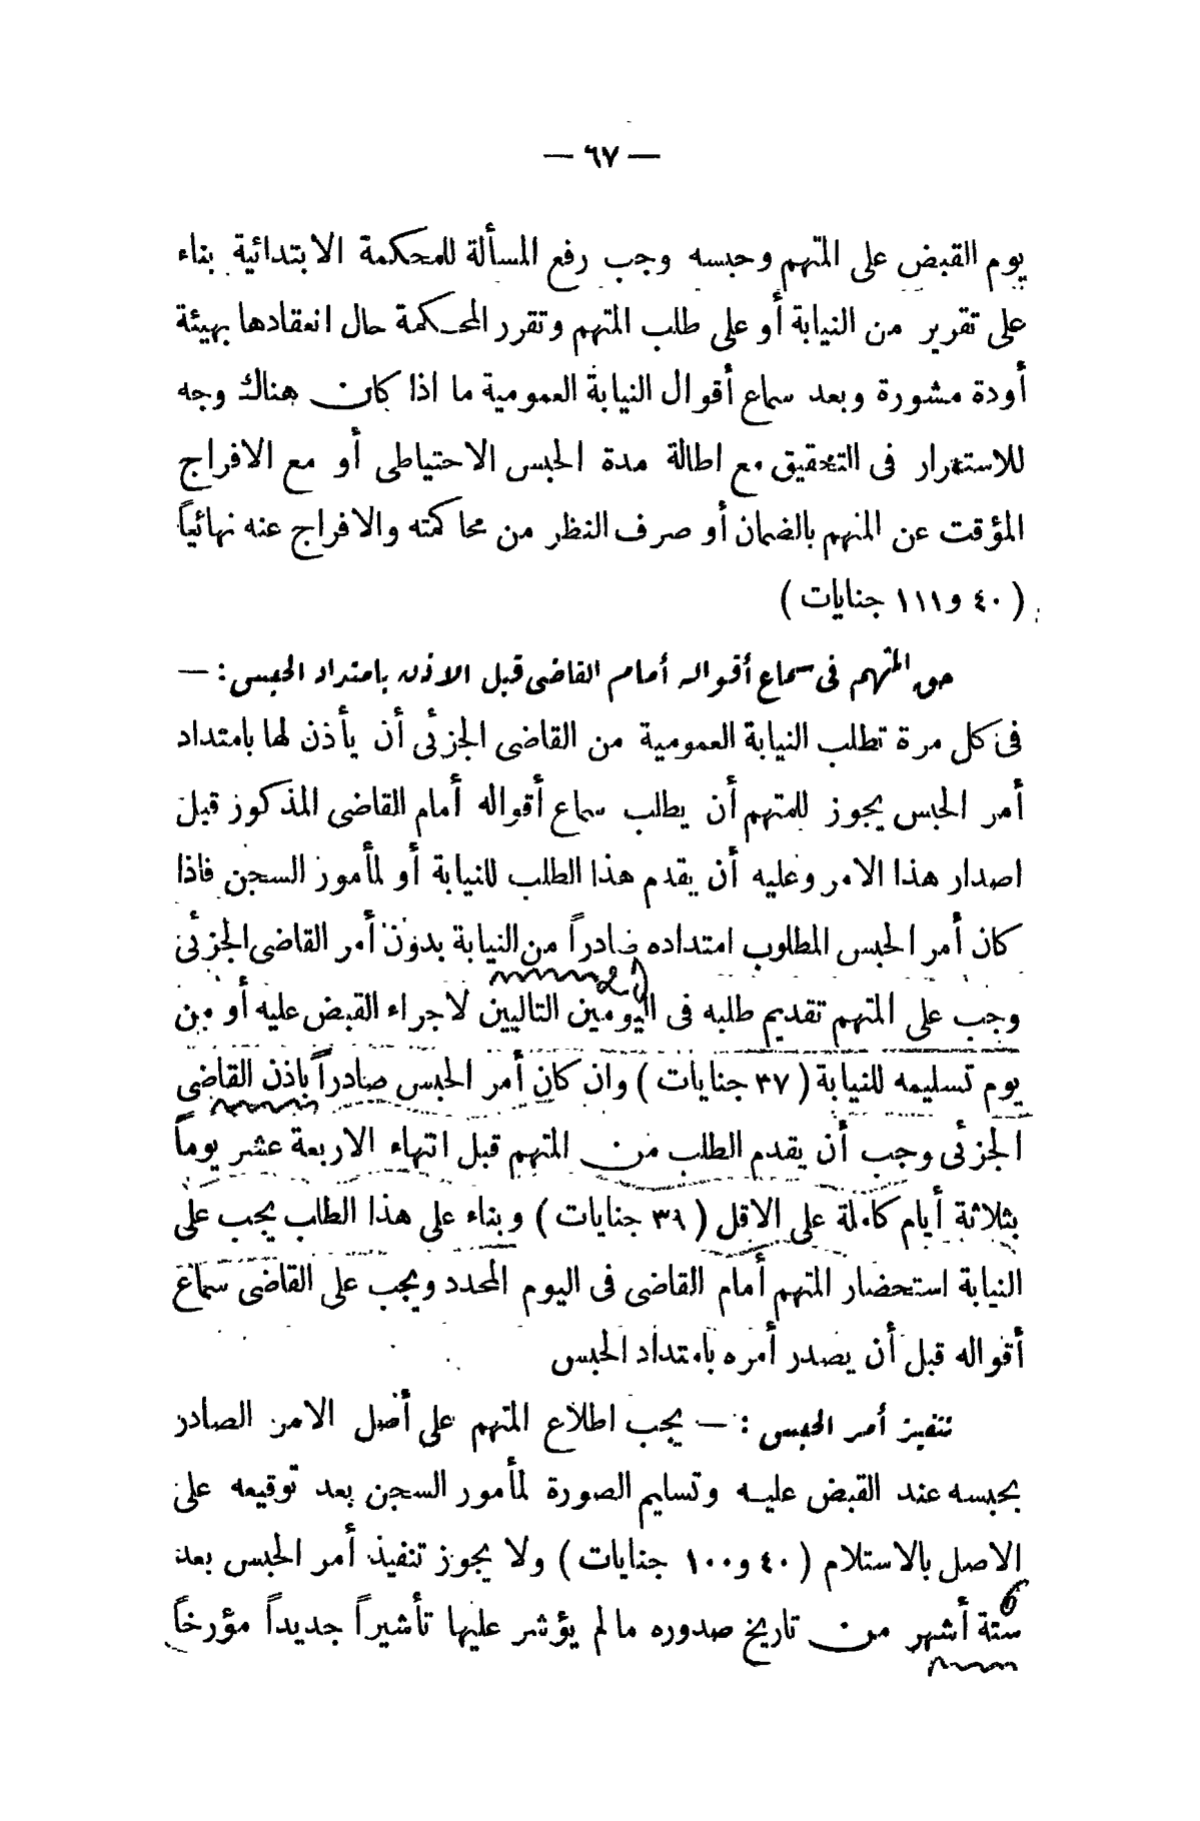 — ٦٧ —
يوم القبض على المتهم وحبسه وجب رفع المسألة للمحكمة الابتدائية بناء
على تقرير من النيابة أو على طلب المتهم وتقرر المحكمة حال انعقادها بهيئة
أودة مشورة وبعد سماع أقوال النيابة العمومية ما اذا كان هناك وجه
للاستمرار فى التحقيق مع اطالة مدة الحبس الاحتياطى أو مع الافراج
المؤقت عن المتهم بالضمان أو صرف النظر من محاكمته والافراج عنه نهائياً
( ٤٠ و ١١١ جنايات )
حق المتهم فى سماع أقواله أمام القاضى قبل الاذن بامتداد الحبس : —
فى كل مرة تطلب النيابة العمومية من القاضى الجزئى أن يأذن لها بامتداد
أمر الحبس يجوز للمتهم أن يطلب سماع أقواله أمام القاضى المذكور قبل
اصدار هذا الامر وعليه أن يقدم هذا الطلب للنيابة أو لمأمور السجن فاذا
كان أمر الحبس المطلوب امتداده صادراً من النيابة بدون أمر القاضى الجزئى
وجب على المتهم تقديم طلبه فى اليومين التاليين لاجراء القبض عليه أو من
يوم تسليمه للنيابة ( ٣٧ جنايات ) وان كان أمر الحبس صادراً باذن القاضى
الجزئى وجب أن يقدم الطلب من المتهم قبل انتهاء الاربعة عشر يوماً
بثلاثة أيام كاملة على الاقل ( ٣٩ جنايات ) وبناء على هذا الطلب يجب على
النيابة استحضار المتهم أمام القاضى فى اليوم المحدد ويجب على القاضى سماع
أقواله قبل أن يصدر أمره بامتداد الحبس
تنفيذ أمر الحبس : — يجب اطلاع المتهم على أصل الامر الصادر
بحبسه عند القبض عليه وتسليم الصورة لمأمور السجن بعد توقيعه على
الاصل بالاستلام ( ٤٠ و ١٠٠ جنايات ) ولا يجوز تنفيذ أمر الحبس بعد
ستة أشهر من تاريخ صدوره ما لم يؤشر عليها تأشيراً جديداً مؤرخاً